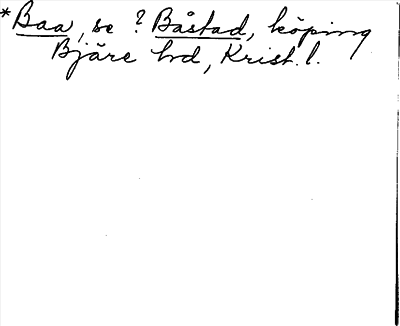 *Baa, se ? Båstad, köping
Bjäre hd, Krist. l.